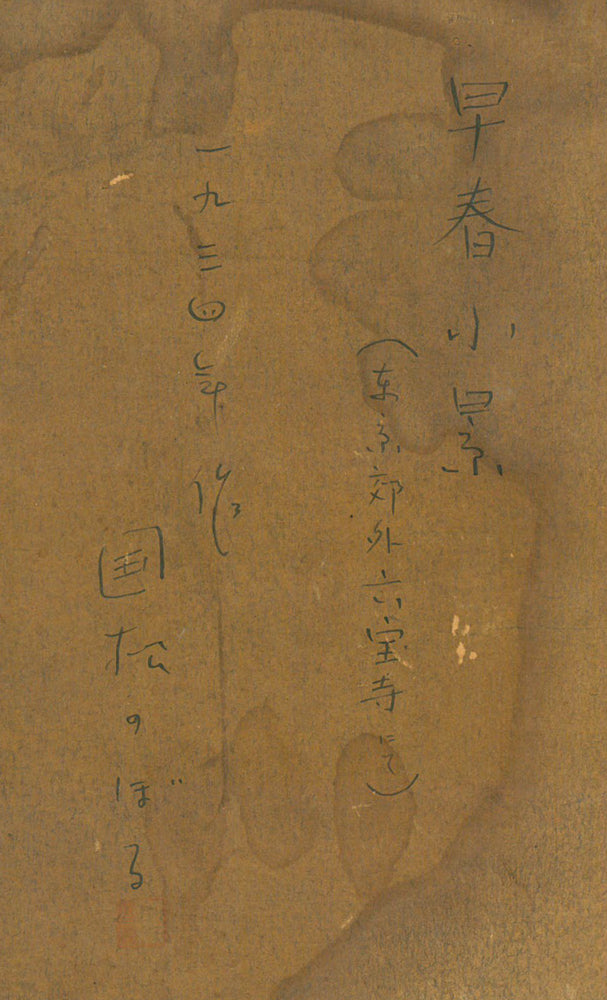 早春小景
（東京郊外六宝寺にて）
一九三四年作
国松のぼる